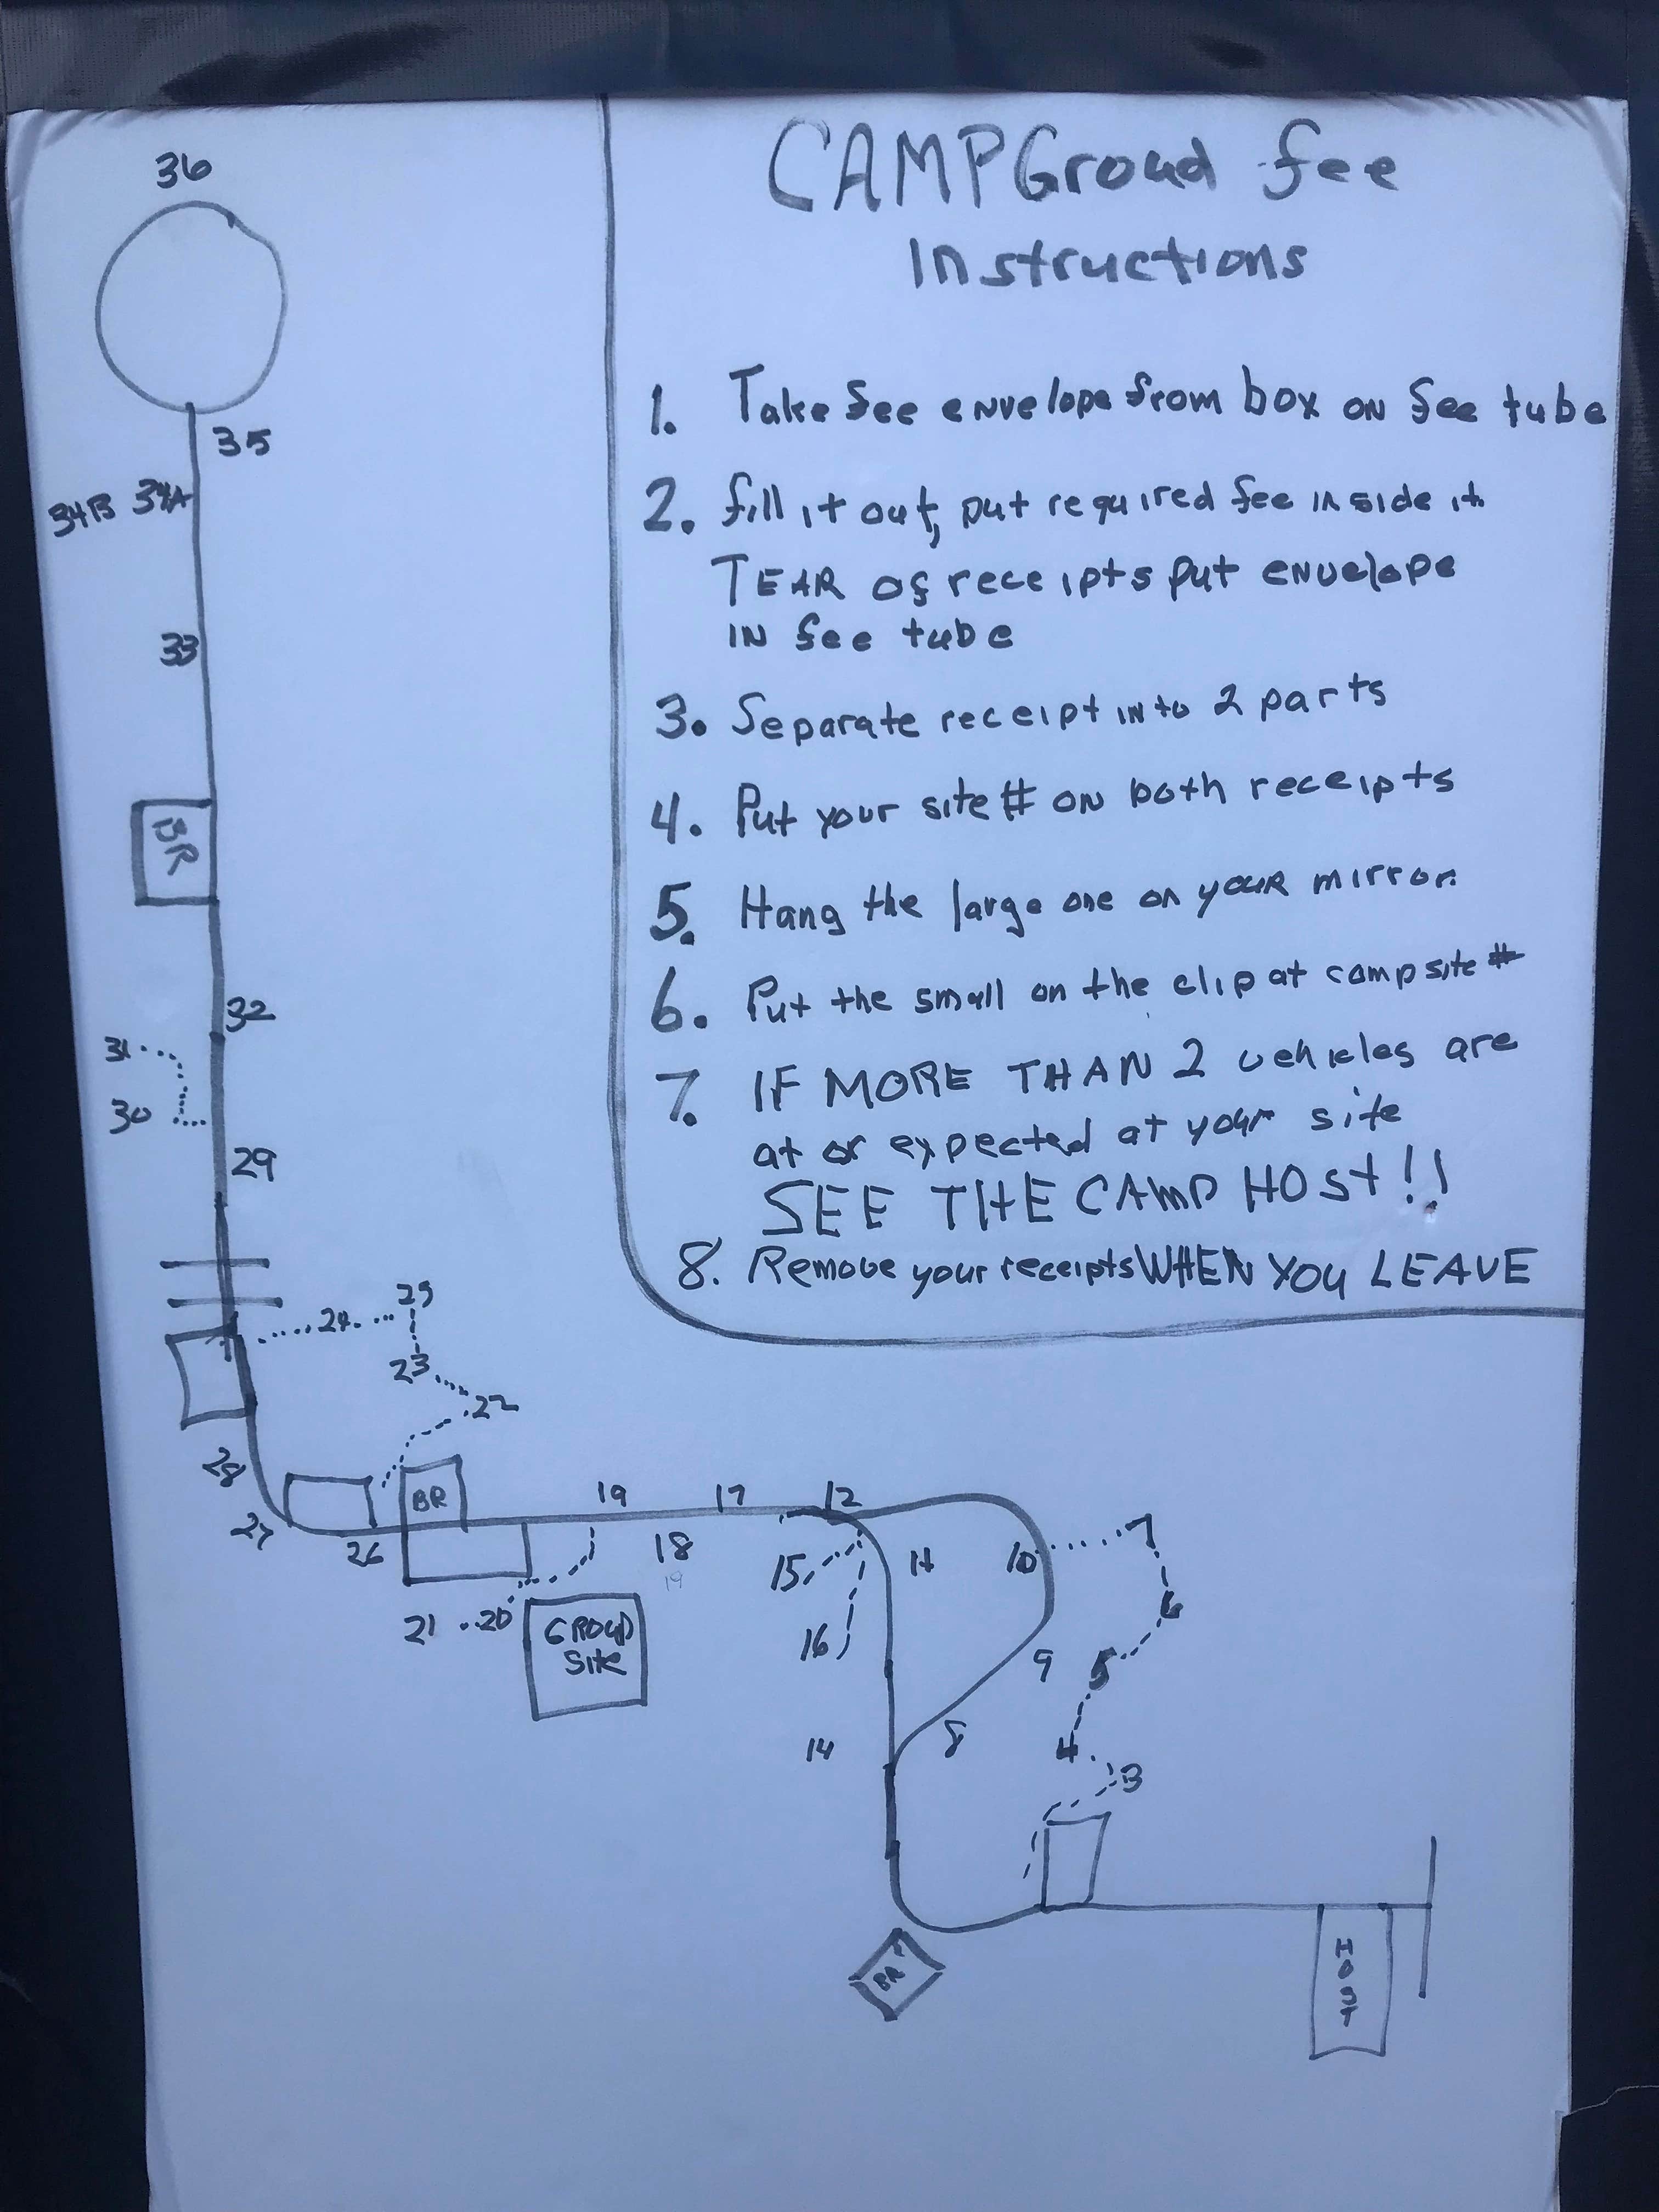 CAMPGround fee
Instructions
1. Take fee envelope from box on fee tube
2. fill it out, put required fee inside it.
TEAR of receipts put envelope
IN fee tube
3. Separate receipt into 2 parts
4. Put your site # on both receipts
5. Hang the large one on your mirror.
6. Put the small on the clip at campsite #
7. IF MORE THAN 2 vehicles are
at or expected at your site
SEE THE CAMP HOST!!
8. Remove your receipts WHEN YOU LEAVE
36
35
34B 34A
33
BR
32
31
30
29
25
24
23
22
28
27
26
BR
19
17
12
18
19
15
11
10
7
21
20
GROUP
Site
16
6
9
5
14
8
4
3
BR
HOST